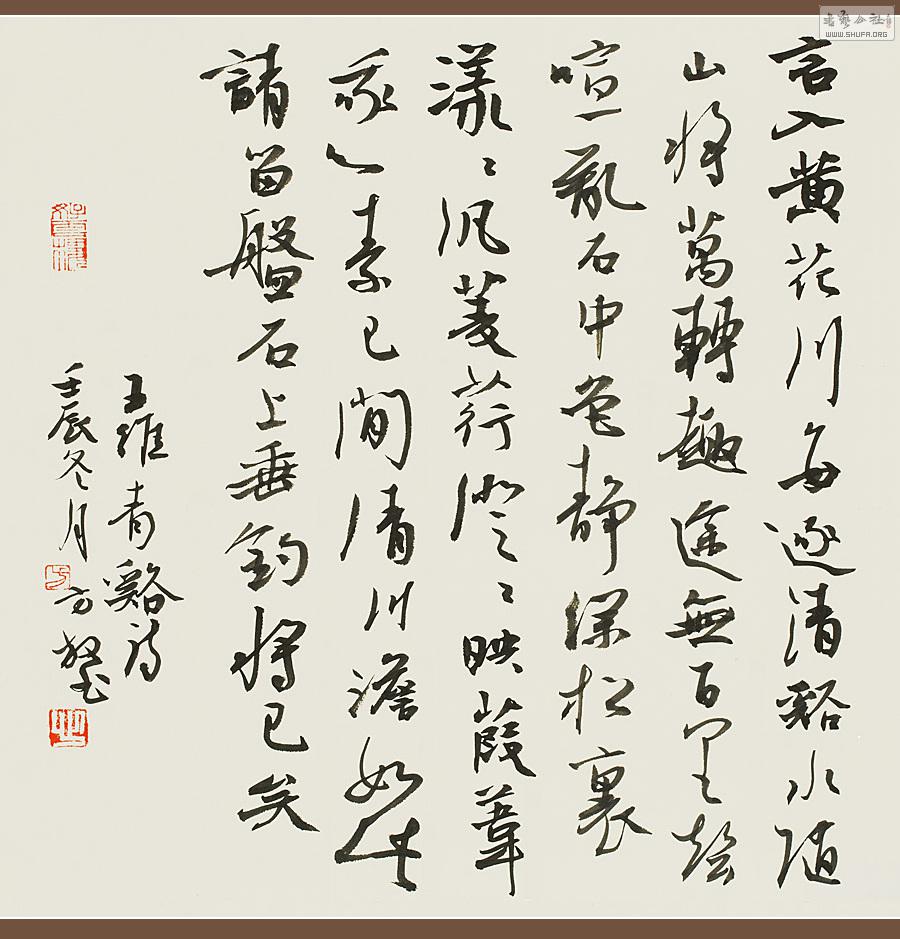 書藝公社
WWW.SHUFA.ORG
言入黄花川每逐清谿水随
山将萬轉趣途無百里聲
喧亂石中色靜深松裏
漾〻汎菱荇澄〻映葭葦
我心素已閒清川澹如此
請留盤石上垂釣将已矣
王維青谿詩
壬辰冬月方